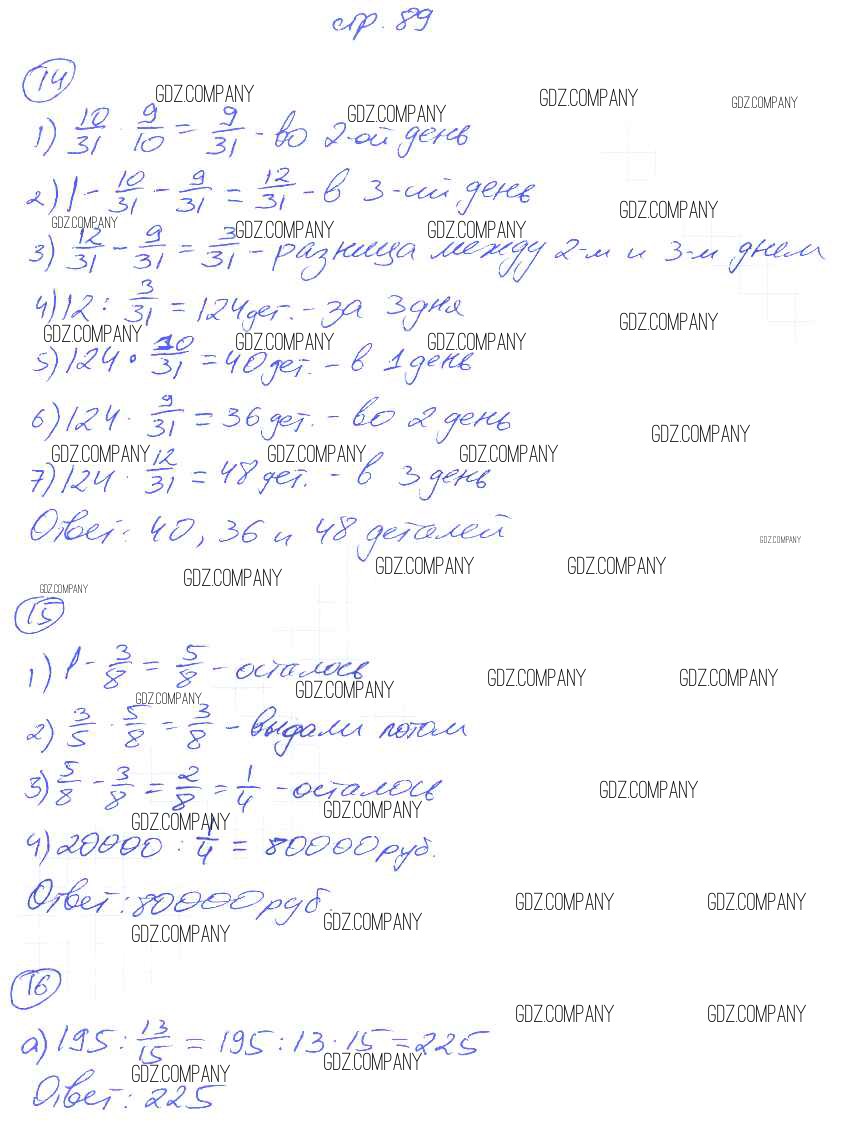 стр. 89
14
GDZ.COMPANY GDZ.COMPANY GDZ.COMPANY GDZ.COMPANY
1) 10/31 · 9/10 = 9/31 - во 2-ой день
2) 1 - 10/31 - 9/31 = 12/31 - в 3-ий день
GDZ.COMPANY GDZ.COMPANY GDZ.COMPANY GDZ.COMPANY
3) 12/31 - 9/31 = 3/31 - разница между 2-м и 3-м днем
4) 12 : 3/31 = 124 дет. - за 3 дня
GDZ.COMPANY GDZ.COMPANY GDZ.COMPANY GDZ.COMPANY
5) 124 · 10/31 = 40 дет. - в 1 день
6) 124 · 9/31 = 36 дет. - во 2 день
GDZ.COMPANY GDZ.COMPANY GDZ.COMPANY GDZ.COMPANY
7) 124 · 12/31 = 48 дет. - в 3 день
Ответ: 40, 36 и 48 деталей
GDZ.COMPANY GDZ.COMPANY GDZ.COMPANY GDZ.COMPANY GDZ.COMPANY
15
1) 1 - 3/8 = 5/8 - осталось
GDZ.COMPANY GDZ.COMPANY GDZ.COMPANY GDZ.COMPANY
2) 3/5 · 5/8 = 3/8 - выдали потом
3) 5/8 - 3/8 = 2/8 = 1/4 - осталось
GDZ.COMPANY GDZ.COMPANY GDZ.COMPANY
4) 20000 : 1/4 = 80000 руб.
Ответ: 80000 руб.
GDZ.COMPANY GDZ.COMPANY GDZ.COMPANY GDZ.COMPANY
16
GDZ.COMPANY GDZ.COMPANY
а) 195 : 13/15 = 195 : 13 · 15 = 225
GDZ.COMPANY GDZ.COMPANY
Ответ: 225